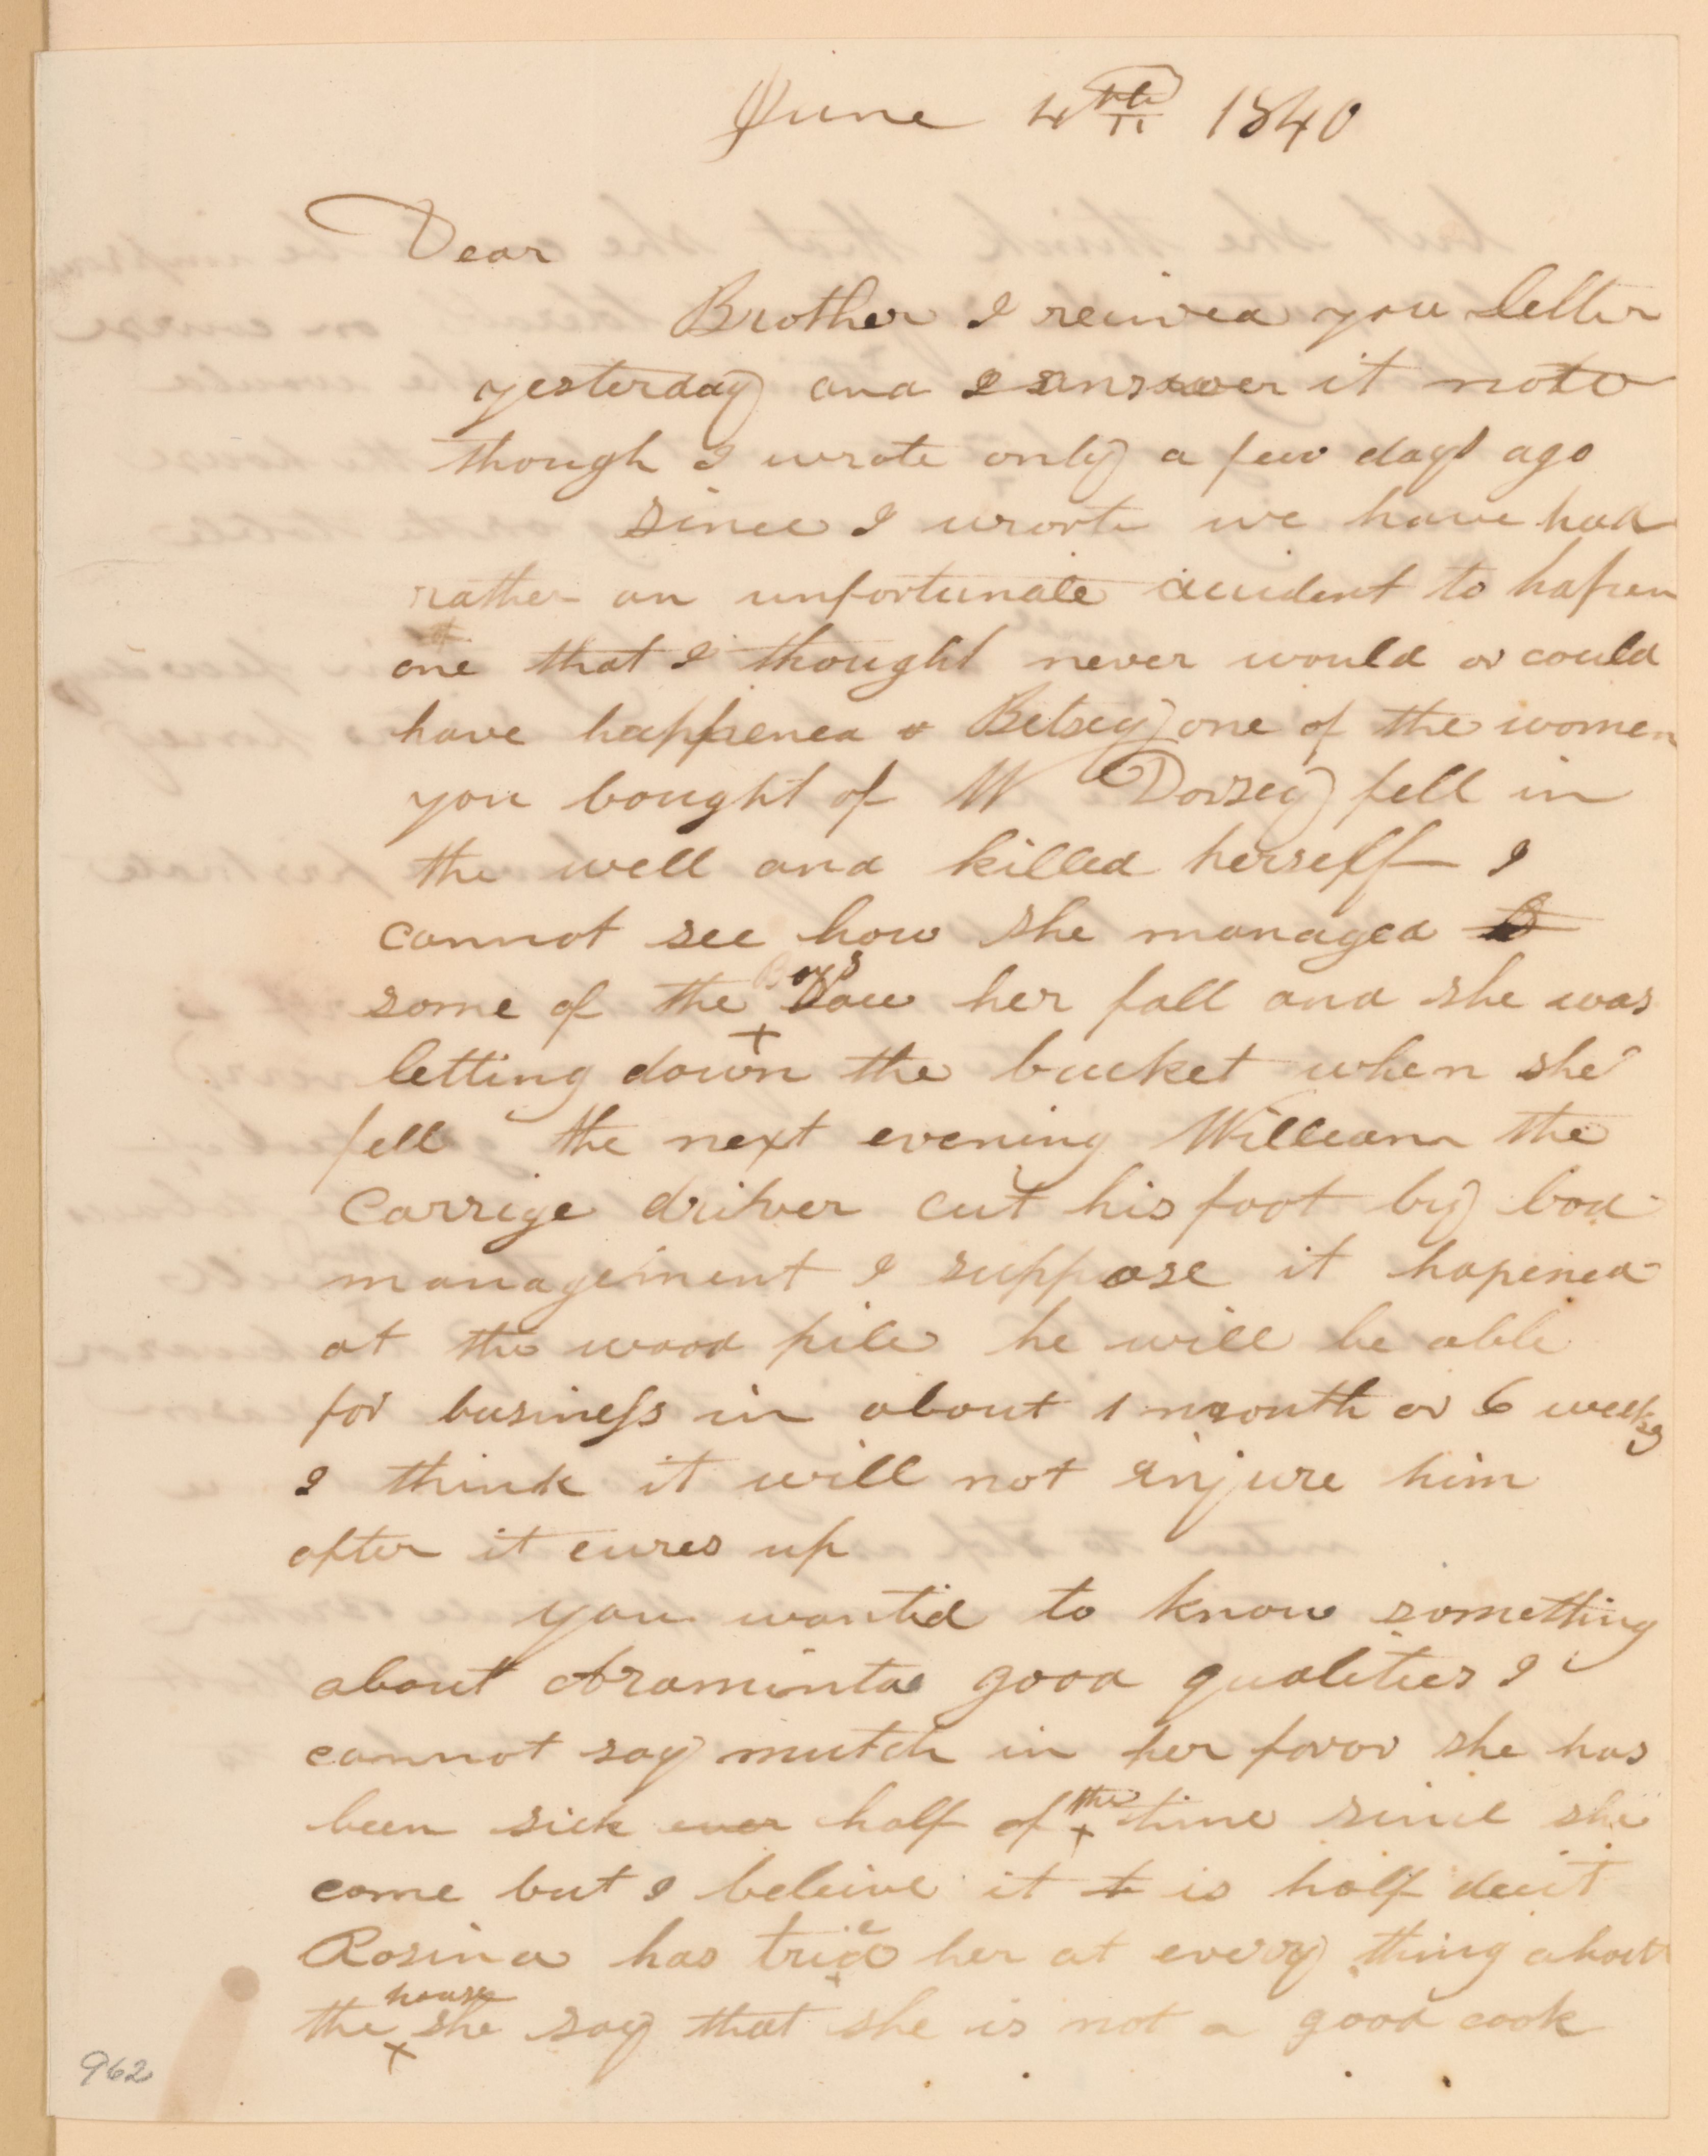 June 4th 1840
Dear
Brother I recived you letter
yesterday and I answer it noto
though I wrote only a few days ago
since I wrote we have had
rather an unfortunate accident to hapen
one that I thought never would or could
have happened Betsey one of the women
you bought of W Dorsey fell in
the well and killed herself I
cannot see how she managed to
some of the Boys saw her fall and she was
letting down the bucket when she
fell the next evening William the
Carrige driver cut his foot by bad
management I suppose it hapened
at the wood pile he will be able
for business in about 1 month or 6 weeks
I think it will not injure him
after it cures up
you wantid to know something
about Araminta good qualities I
cannot say mutch in her favor she has
been sick ever half of the time since she
come but I beleive it is half deceit
Rosina has tried her at every thing about
the house she say that she is not a good cook
962